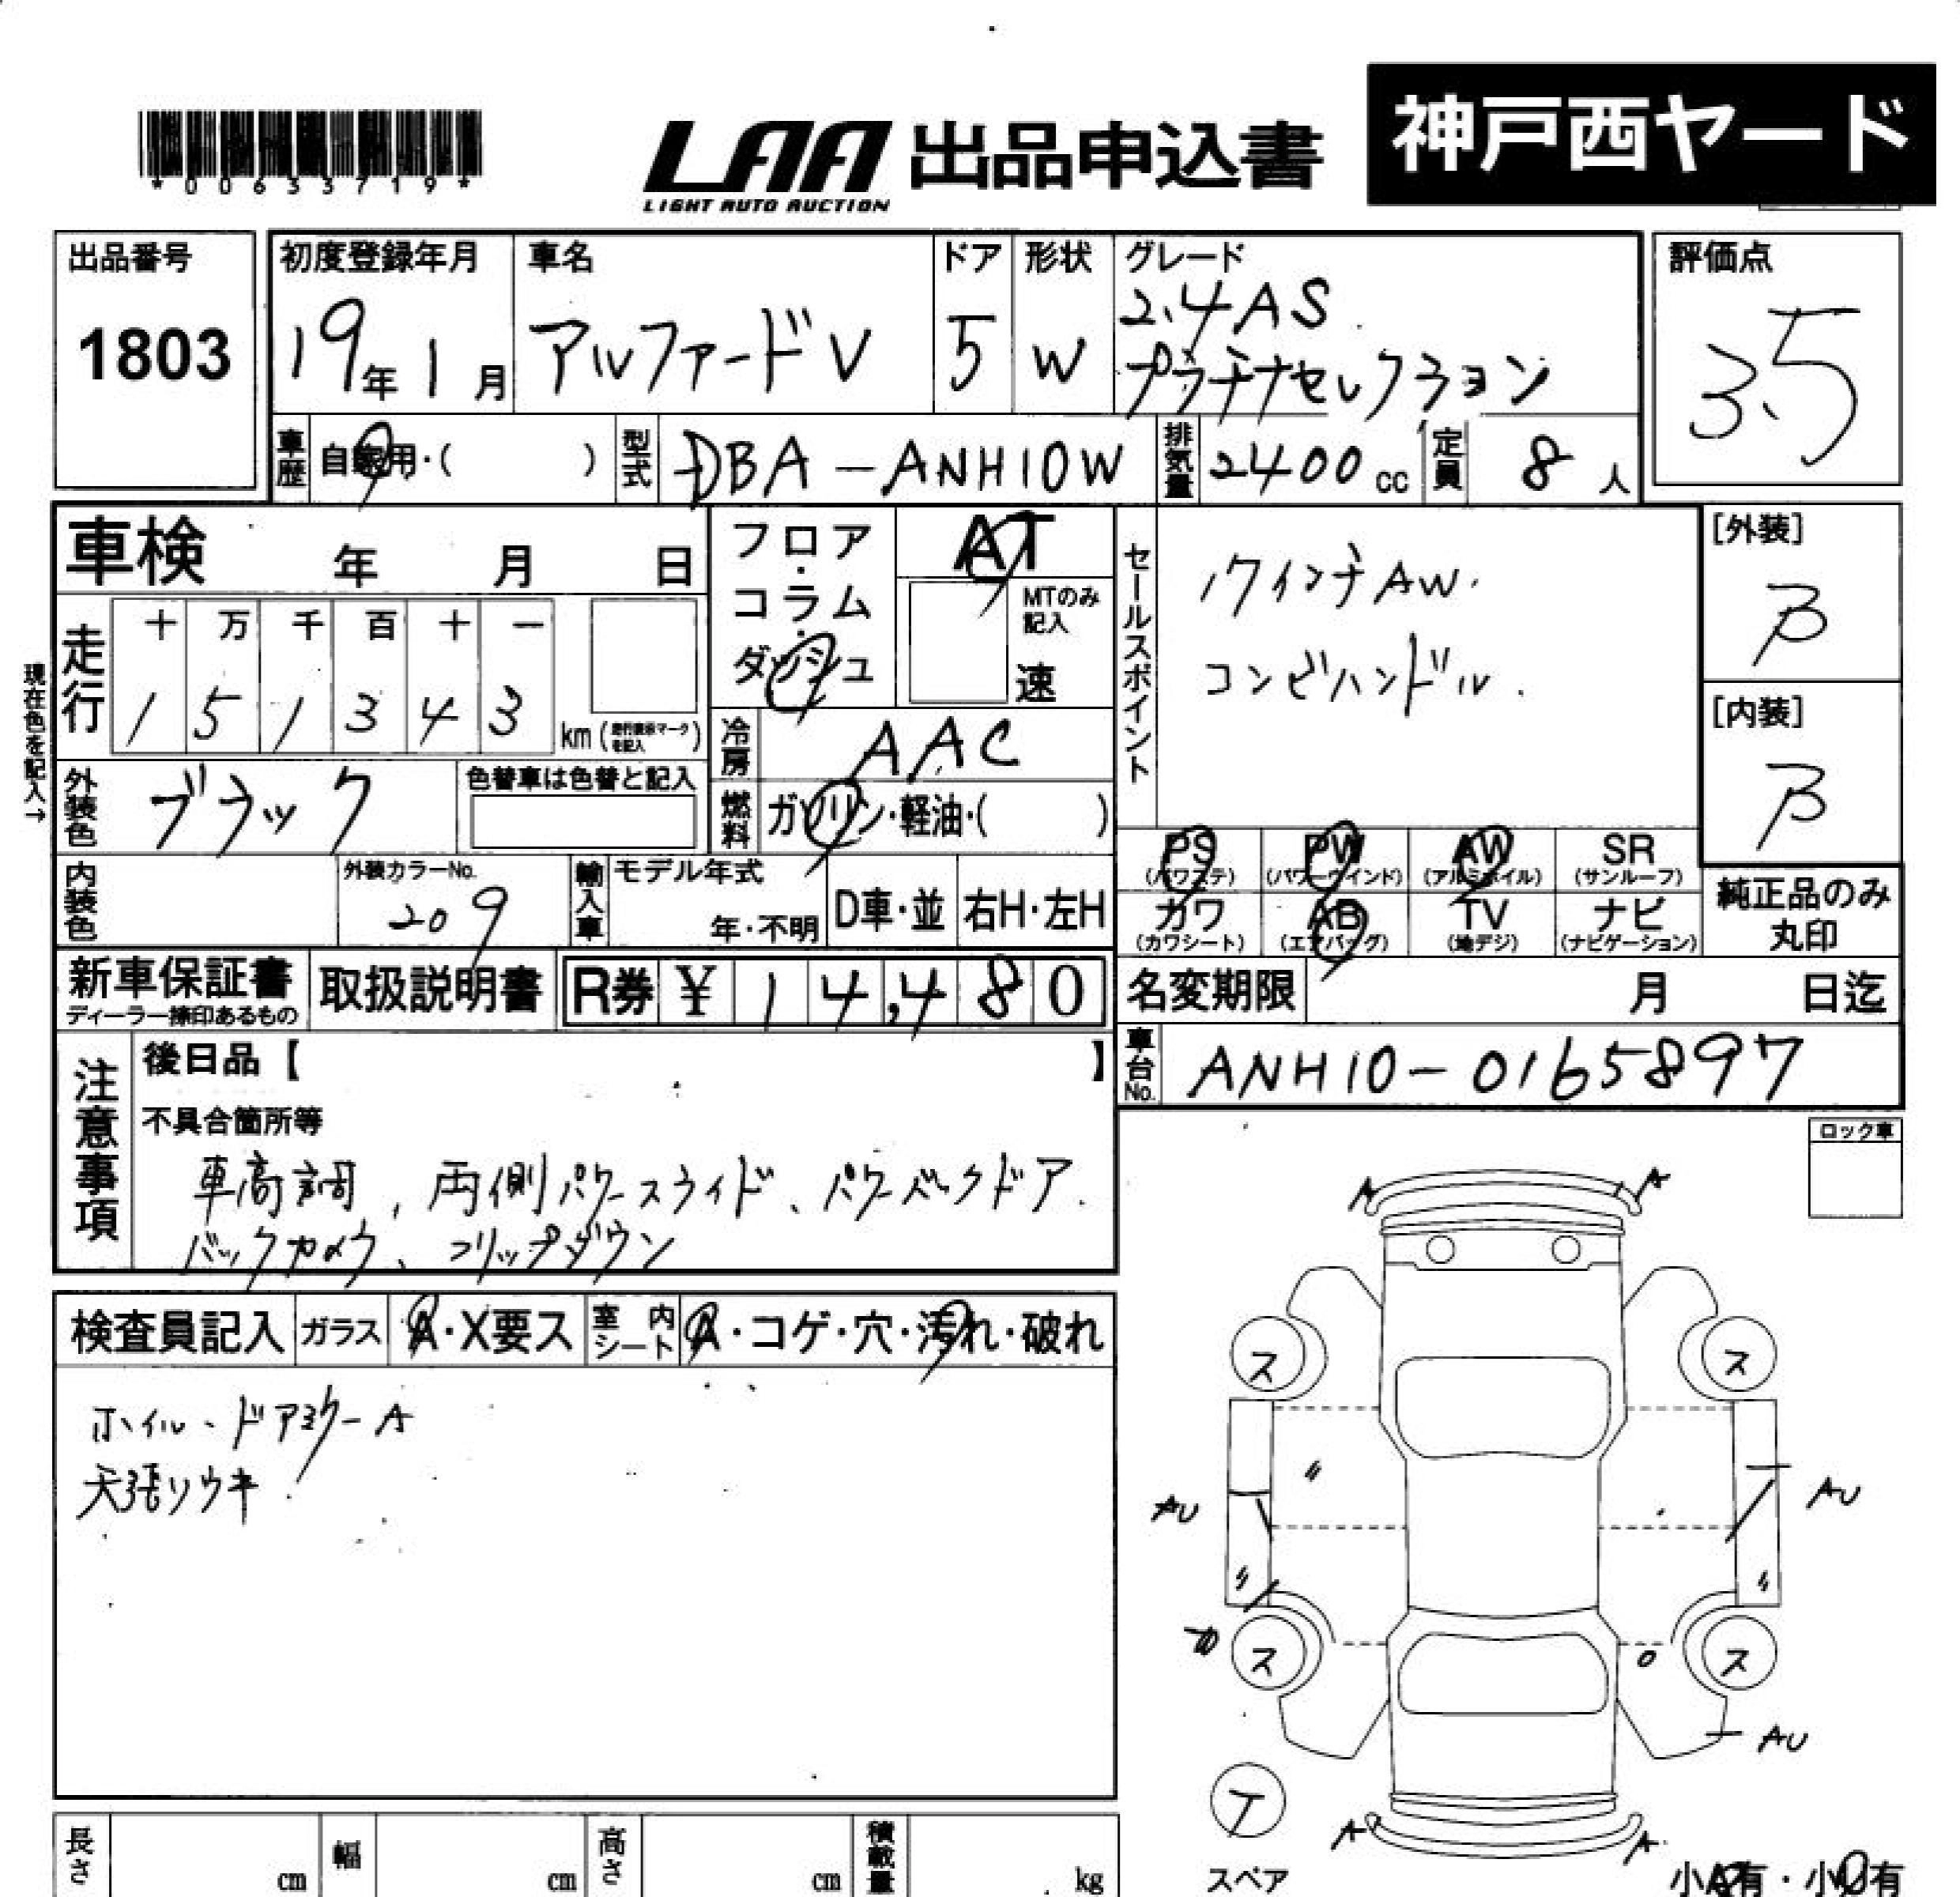 *00633719*
LAA 出品申込書
LIGHT AUTO AUCTION
神戸西ヤード
出品番号
1803
初度登録年月
19年1月
車名
アルファードV
ドア
5
形状
W
グレード
2.4AS
プラチナセレクション
評価点
3.5
車歴
自家用・( )
型式
DBA-ANH10W
排気量
2400cc
定員
8人
車検 年 月 日
フロア・コラム・ダッシュ
AT
MTのみ記入
速
セールスポイント
17インチAW.
コンビハンドル.
[外装]
B
[内装]
B
現在色を記入→
走行
十 万 千 百 十 一
1 5 1 3 4 3
km(走行表示マークを記入)
冷房
AAC
外装色
ブラック
色替車は色替と記入
燃料
ガソリン・軽油・( )
PS (パワステ)
PW (パワーウインド)
AW (アルミホイル)
SR (サンルーフ)
カワ (カワシート)
AB (エアバッグ)
TV (地デジ)
ナビ (ナビゲーション)
純正品のみ丸印
内装色
外装カラーNo.
209
輸入車
モデル年式
年・不明
D車・並
右H・左H
新車保証書
ディーラー捺印あるもの
取扱説明書
R券 ¥ 14,480
名変期限 月 日迄
車台No.
ANH10-0165897
注意事項
後日品【 】
不具合箇所等
車高調, 両側パワースライド、パワーバックドア.
バックカメラ、フリップダウン
ロック車
検査員記入
ガラス
A・X要ス
室内シート
A・コゲ・穴・汚れ・破れ
ホイル、ドアミラーA
天張りウキ
A A
ス ス
AU AU
ス ス
AU
T
スペア
A A
小A有・小U有
長さ cm
幅 cm
高さ cm
積載量 kg